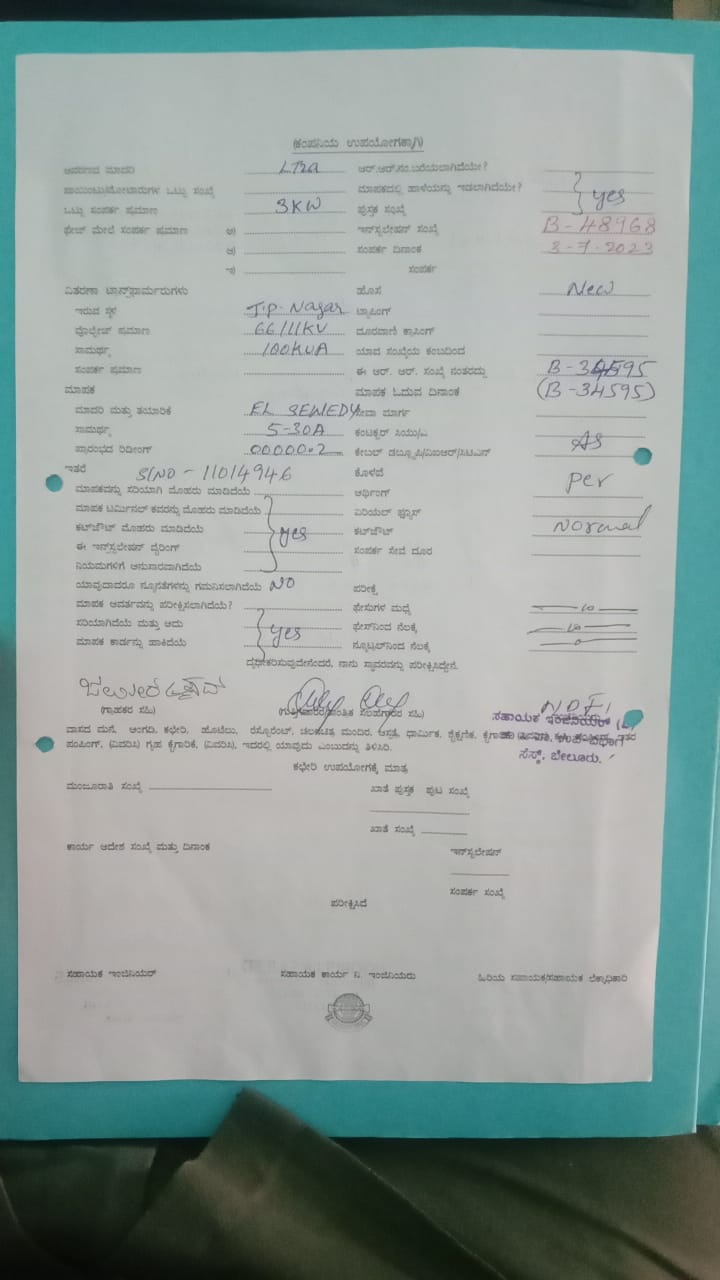 (ಕಂಪನಿಯ ಉಪಯೋಗಕ್ಕಾಗಿ)
ಆವರಣದ ಮಾದರಿ LT2a ಆರ್.ಆರ್.ಸಂ.ಬರೆಯಲಾಗಿದೆಯೇ?
ಪಾಯಿಂಟು/ಮೋಟಾರುಗಳ ಒಟ್ಟು ಸಂಖ್ಯೆ ಮಾಪಕದಲ್ಲಿ ಹಾಳೆಯನ್ನು ಇಡಲಾಗಿದೆಯೇ? yes
ಒಟ್ಟು ಸಂಪರ್ಕ ಪ್ರಮಾಣ 3KW ಪುಸ್ತಕ ಸಂಖ್ಯೆ
ಫೇಜ್ ಮೇಲೆ ಸಂಪರ್ಕ ಪ್ರಮಾಣ ಅ) ಇನ್‌ಸ್ಟಲೇಷನ್ ಸಂಖ್ಯೆ B-48968
ಆ) ಸಂಪರ್ಕ ದಿನಾಂಕ 3-7-2023
ಇ) ಸಂಪರ್ಕ
ವಿತರಣಾ ಟ್ರಾನ್ಸ್‌ಫಾರ್ಮರುಗಳು ಹೊಸ New
ಇರುವ ಸ್ಥಳ T.P. Nagar ಟ್ಯಾಪಿಂಗ್
ವೋಲ್ಟೇಜ್ ಪ್ರಮಾಣ 66/11KV ದೂರವಾಣಿ ಕ್ರಾಸಿಂಗ್
ಸಾಮರ್ಥ್ಯ 100KVA ಯಾವ ಸಂಖ್ಯೆಯ ಕಂಬದಿಂದ
ಸಂಪರ್ಕ ಪ್ರಮಾಣ ಈ ಆರ್. ಆರ್. ಸಂಖ್ಯೆ ನಂತರದ್ದು
ಮಾಪಕ ಮಾಪಕ ಓದುವ ದಿನಾಂಕ (B-34595)
ಮಾದರಿ ಮತ್ತು ತಯಾರಿಕೆ EL SEWEDY ಸೇವಾ ಮಾರ್ಗ
ಸಾಮರ್ಥ್ಯ 5-30A
ಪ್ರಾರಂಭದ ರಿಡೀಂಗ್ 00000.2 As
ಇತರೆ S/NO - 11014946 ಕೊಳವೆ Per
ಮಾಪಕವನ್ನು ಸರಿಯಾಗಿ ಮೊಹರು ಮಾಡಿದೆಯೆ ಅರ್ಥಿಂಗ್
ಮಾಪಕ ಟರ್ಮಿನಲ್ ಕವರನ್ನು ಮೊಹರು ಮಾಡಿದೆಯೆ ಏರಿಯಲ್ ಫ್ಯೂಸ್
ಕಟ್‌ಔಟ್ ಮೊಹರು ಮಾಡಿದೆಯೆ yes ಕಟ್‌ಔಟ್ Normal
ಈ ಇನ್‌ಸ್ಟಲೇಷನ್ ವೈರಿಂಗ್ ಸಂಪರ್ಕ ಸೇವೆ ದೂರ
ನಿಯಮಗಳಿಗೆ ಅನುಸಾರವಾಗಿದೆಯೆ
ಯಾವುದಾದರೂ ನ್ಯೂನತೆಗಳನ್ನು ಗಮನಿಸಲಾಗಿದೆಯೆ NO ಪರೀಕ್ಷೆ
ಮಾಪಕ ಆವರ್ತವನ್ನು ಪರೀಕ್ಷಿಸಲಾಗಿದೆಯೆ? ಫೇಸುಗಳ ಮಧ್ಯೆ
ಸರಿಯಾಗಿದೆಯೆ ಮತ್ತು ಅದು yes ಫೇಸ್‌ನಿಂದ ನೆಲಕ್ಕೆ
ಮಾಪಕ ಕಾರ್ಡನ್ನು ಹಾಕಿದೆಯೆ ನ್ಯೂಟ್ರಲ್‌ನಿಂದ ನೆಲಕ್ಕೆ
ದೃಢೀಕರಿಸುವುದೇನೆಂದರೆ, ನಾನು ಸ್ಥಾವರವನ್ನು ಪರೀಕ್ಷಿಸಿದ್ದೇನೆ.
(ಗ್ರಾಹಕರ ಸಹಿ)
ಸಹಾಯಕ ಇಂಜಿನಿಯರ್
ವಾಸದ ಮನೆ, ಅಂಗಡಿ, ಕಛೇರಿ, ಹೊಟೆಲು, ರೆಸ್ಟೋರೆಂಟ್, ಚಲನಚಿತ್ರ ಮಂದಿರ, ಆಸ್ಪತ್ರೆ, ಧಾರ್ಮಿಕ, ಶೈಕ್ಷಣಿಕ, ಇತರ
ಪಂಪಿಂಗ್, (ವಿವರಿಸಿ) ಗೃಹ ಕೈಗಾರಿಕೆ, (ವಿವರಿಸಿ), ಇದರಲ್ಲಿ ಯಾವುದು ಎಂಬುದನ್ನು ತಿಳಿಸಿರಿ.
ಸೆಸ್ಕ್, ಬೇಲೂರು.
ಕಛೇರಿ ಉಪಯೋಗಕ್ಕೆ ಮಾತ್ರ
ಮಂಜೂರಾತಿ ಸಂಖ್ಯೆ ಖಾತೆ ಪುಸ್ತಕ ಪುಟ ಸಂಖ್ಯೆ
ಖಾತೆ ಸಂಖ್ಯೆ
ಕಾರ್ಯ ಆದೇಶ ಸಂಖ್ಯೆ ಮತ್ತು ದಿನಾಂಕ ಇನ್‌ಸ್ಟಲೇಷನ್
ಸಂಪರ್ಕ ಸಂಖ್ಯೆ
ಪರೀಕ್ಷಿಸಿದೆ
ಸಹಾಯಕ ಇಂಜಿನಿಯರ್ ಸಹಾಯಕ ಕಾರ್ಯ ನಿ. ಇಂಜಿನಿಯರು ಹಿರಿಯ ಸಹಾಯಕ/ಸಹಾಯಕ ಲೆಕ್ಕಾಧಿಕಾರಿ